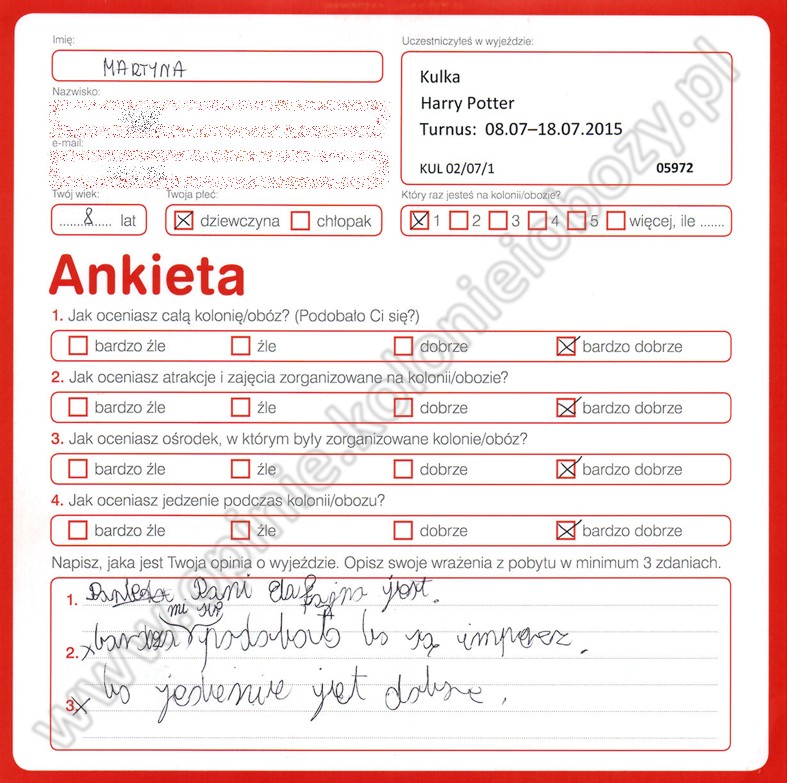 Imię:
MARTYNA
Nazwisko:
e-mail:
Twój wiek:
8 lat
Twoja płeć:
dziewczyna chłopak
Uczestniczyłeś w wyjeździe:
Kulka
Harry Potter
Turnus: 08.07–18.07.2015
KUL 02/07/1 05972
Który raz jesteś na kolonii/obozie?
1 2 3 4 5 więcej, ile .......
Ankieta
1. Jak oceniasz całą kolonię/obóz? (Podobało Ci się?)
bardzo źle źle dobrze bardzo dobrze
2. Jak oceniasz atrakcje i zajęcia zorganizowane na kolonii/obozie?
bardzo źle źle dobrze bardzo dobrze
3. Jak oceniasz ośrodek, w którym były zorganizowane kolonie/obóz?
bardzo źle źle dobrze bardzo dobrze
4. Jak oceniasz jedzenie podczas kolonii/obozu?
bardzo źle źle dobrze bardzo dobrze
Napisz, jaka jest Twoja opinia o wyjeździe. Opisz swoje wrażenia z pobytu w minimum 3 zdaniach.
1. Pani fajna jest.
mi się
2. podobało bo są
3. bo
www.opinie.kolonieiobozy.pl